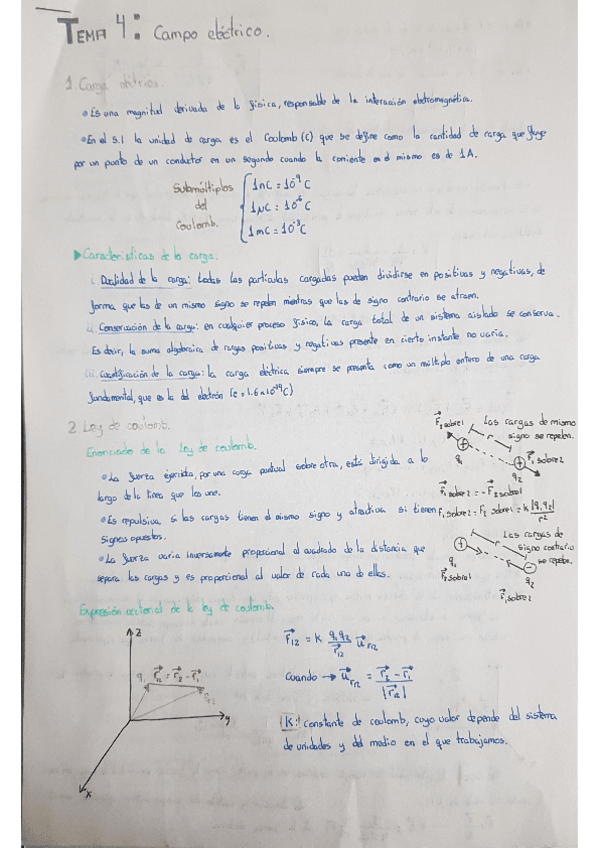 TEMA 4: Campo eléctrico.
1. Carga eléctrica.
• Es una magnitud derivada de la física, responsable de la interacción electromagnética.
• En el S.I la unidad de carga es el Coulomb (C) que se define como la cantidad de carga que fluye
por un punto de un conductor en un segundo cuando la corriente en el mismo es de 1A.
Submúltiplos
del
Coulomb.
1nC = 10⁻⁹C
1μC = 10⁻⁶C
1mC = 10⁻³C
▶ Características de la carga:
i. Dualidad de la carga: todas las partículas cargadas pueden dividirse en positivas y negativas, de
forma que las de un mismo signo se repelen mientras que las de signo contrario se atraen.
ii. Conservación de la carga: en cualquier proceso físico, la carga total de un sistema aislado se conserva.
Es decir, la suma algebraica de cargas positivas y negativas presente en cierto instante no varía.
iii. Cuantificación de la carga: la carga eléctrica siempre se presenta como un múltiplo entero de una carga
fundamental, que es la del electrón (e = 1.6×10⁻¹⁹C)
2. Ley de coulomb.
Enunciado de la Ley de coulomb.
• La fuerza ejercida, por una carga puntual sobre otra, está dirigida a lo
largo de la línea que las une.
• Es repulsiva si las cargas tienen el mismo signo y atractiva si tienen
signos opuestos.
• La fuerza varía inversamente proporcional al cuadrado de la distancia que
separa las cargas y es proporcional al valor de cada una de ellas.
F⃗₂sobre1
Las cargas de mismo
signo se repelen.
q₁
q₂
F⃗₁sobre2
F⃗₁sobre2 = -F⃗₂sobre1
F₁sobre2 = F₂sobre1 = k |q₁q₂|/r²
Las cargas de
signo contrario
se repelen.
q₁
F⃗₂sobre1
q₂
F⃗₁sobre2
Expresión vectorial de la ley de coulomb.
z
q₁
r⃗₁₂ = r⃗₂ - r⃗₁
y
x
F⃗₁₂ = K q₁q₂/r⃗₁₂ u⃗r₁₂
Cuando → u⃗r₁₂ = r⃗₂ - r⃗₁/|r⃗₁₂|
K: constante de coulomb, cuyo valor depende del sistema
de unidades y del medio en el que trabajamos.